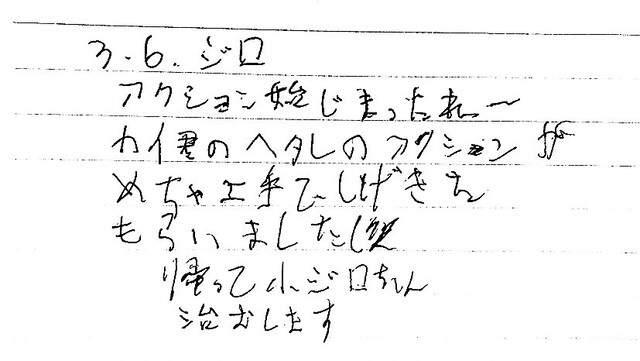 3.6.ジロ
アクション始じまったねー
カイ君のヘタレのアクションが
めちゃ上手でしげきを
もらいました
帰って小ジロちゃん
治むします